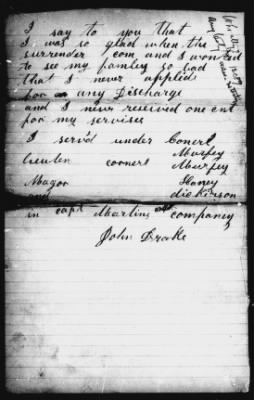 I say to you that
I was so glad when the
surrender com and I wanted
to see my famley so bad
that I never applied
for any Discharge
and I never received one cent
for my servises
I serv'd under Conerl
Murfey
lieuten conerl Murfey
Magor Haney
and dickinson
in capt Martins companey
John Drake